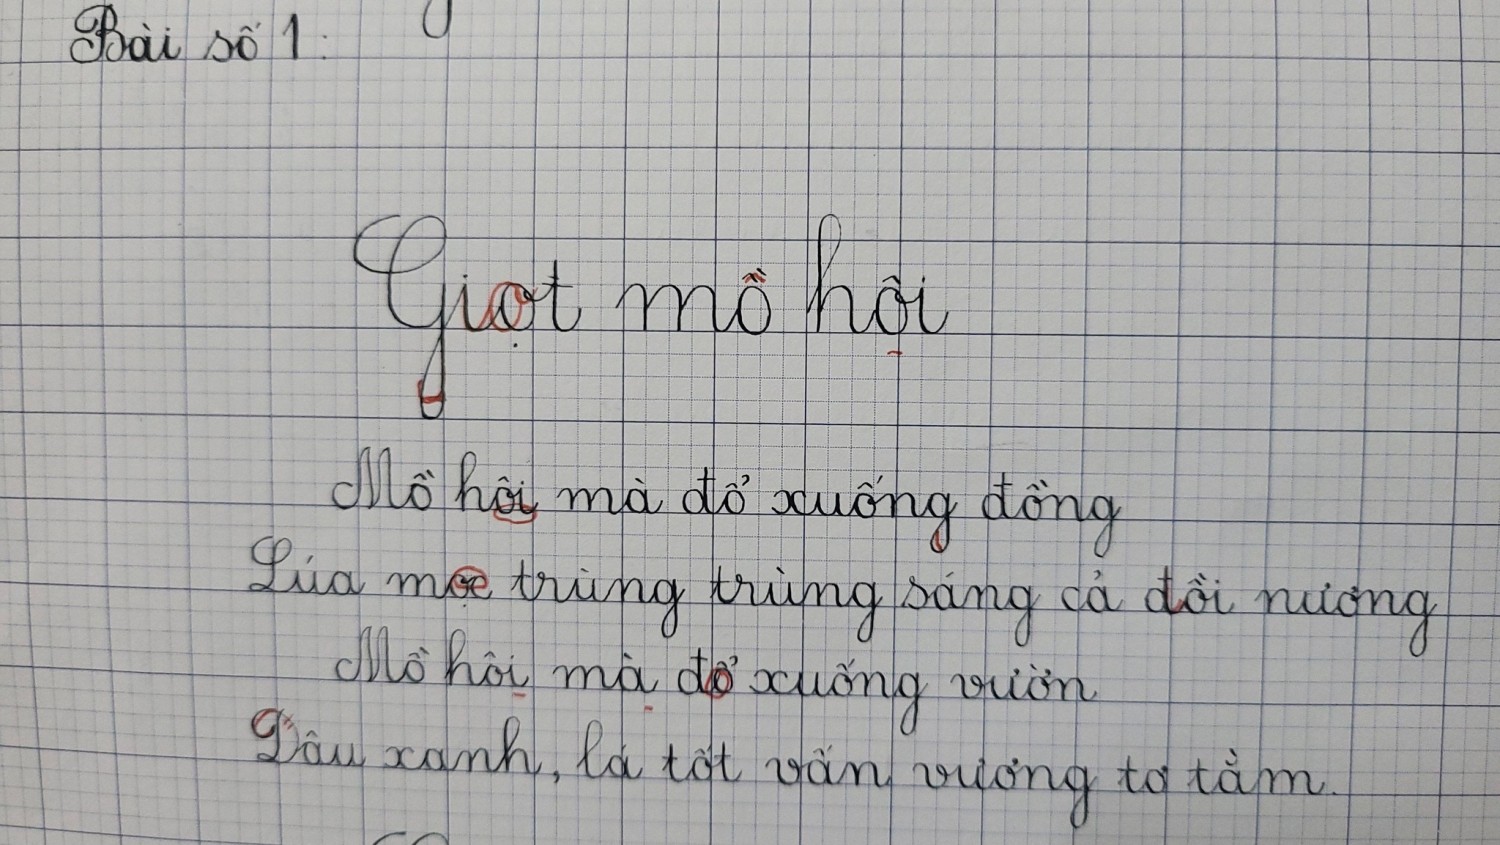 Bài số 1:
Giọt mồ hôi
Mồ hôi mà đổ xuống đồng
Lúa mọc trùng trùng sáng cả đồi nương
Mồ hôi mà đổ xuống vườn
Dâu xanh, lá tốt vấn vương tơ tằm.